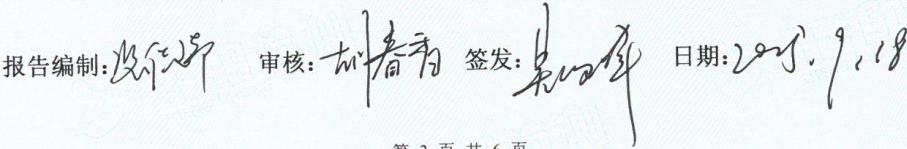 报告编制: 审核:胡春香 签发: 日期:2025.9.18
第 2 页 共 6 页